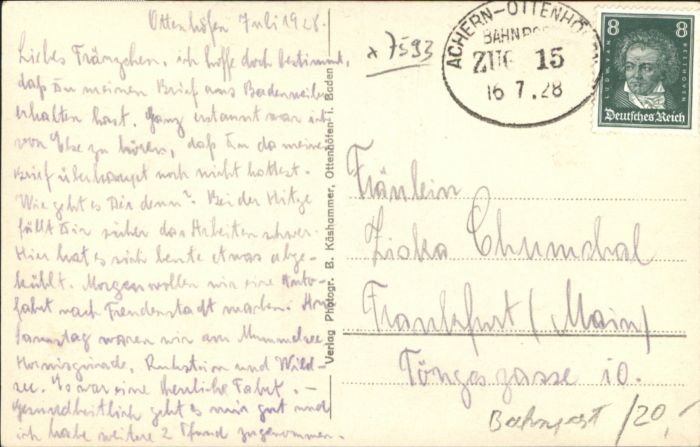 Ottenhöfen Juli 1928.
Liebes Fränzchen, ich hoffe doch bestimmt,
daß Du meinen Brief aus Badenweiler
erhalten hast. Ganz erstaunt war ich
von Else zu hören, daß Du da meinen
Brief überhaupt noch nicht hattest.
Wie geht es Dir denn? Bei der Hitze
fällt Dir sicher das Arbeiten schwer.
Hier hat es sich heute etwas abge-
kühlt. Morgen wollen wir eine Auto-
fahrt nach Freudenstadt machen.
Samstag waren wir am Mummelsee,
Hornisgrinde, Ruhstein und Wild-
see. Es war eine herrliche Fahrt. –
Gesundheitlich geht es mir gut und
ich habe weitere 2 Pfund zugenommen.
Verlag Photogr. B. Käshammer, Ottenhöfen i. Baden
x 7593
ACHERN-OTTENHÖFEN
BAHNPOST
ZUG 15
16.7.28
8 8
LUDW. VAN
BEETHOVEN
Deutsches Reich
Fräulein
Frankfurt (Main)
Töngesgasse 10.
Bahnpost /20,-